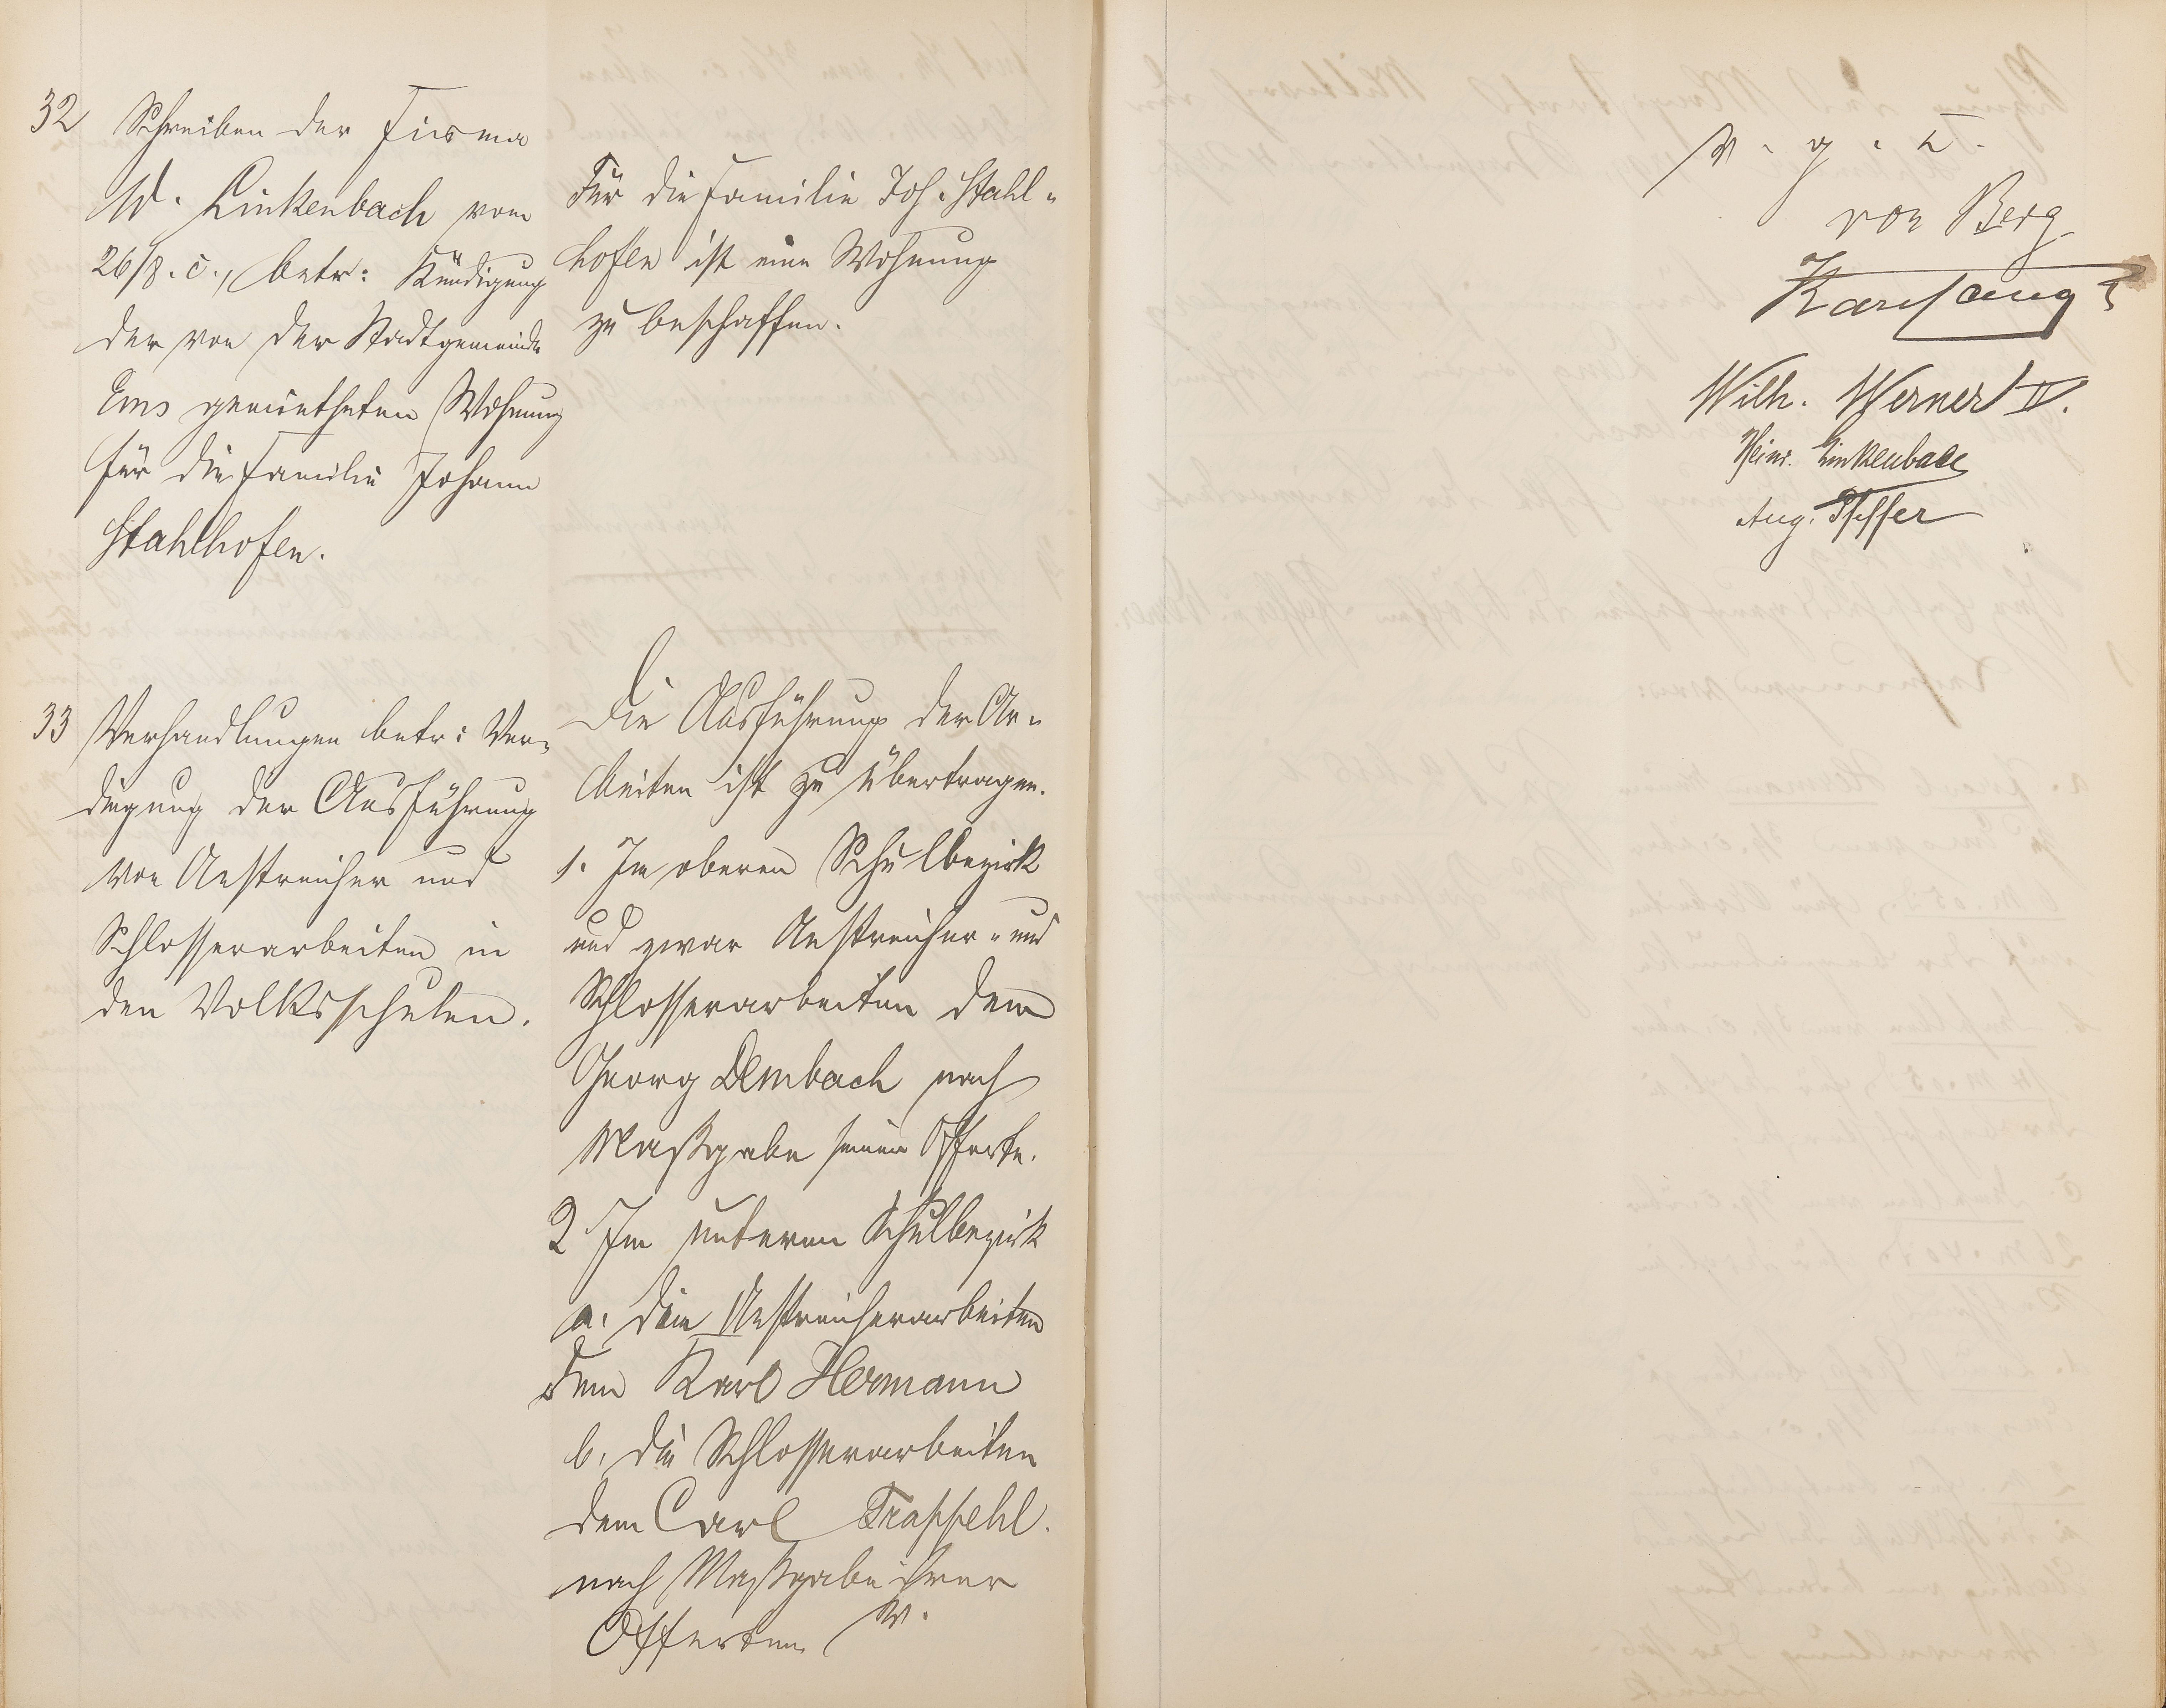 32 Schreiben der Firma
W. Linkenbach vom
26/8. c., betr: Kündigung
der von der Stadtgemeinde
Ems gemietheten Wohnung
für die Familie Johann
Stahlhofen.
Für die Familie Joh. Stahl-
hofen ist eine Wohnung
zu beschaffen.
33 Verhandlungen betr: Ver-
dingung der Ausführung
von Anstreicher und
Schlosserarbeiten in
den Volksschulen.
Die Ausführung der Ar-
beiten ist zu übertragen.
1. Im oberen Schulbezirk
und zwar Anstreicher- und
Schlosserarbeiten dem
Georg Dembach nach
Maßgabe seiner Offerte.
2 Im unteren Schulbezirk
a. die Anstreicherarbeiten
dem Karl Hermann
b. die Schlosserarbeiten
dem Carl
nach Maßgabe ihrer
Offerten
v. g. u.
von Berg
Wilh. Werner IV.
Heinr. Linkenbach
Aug. Pfeffer